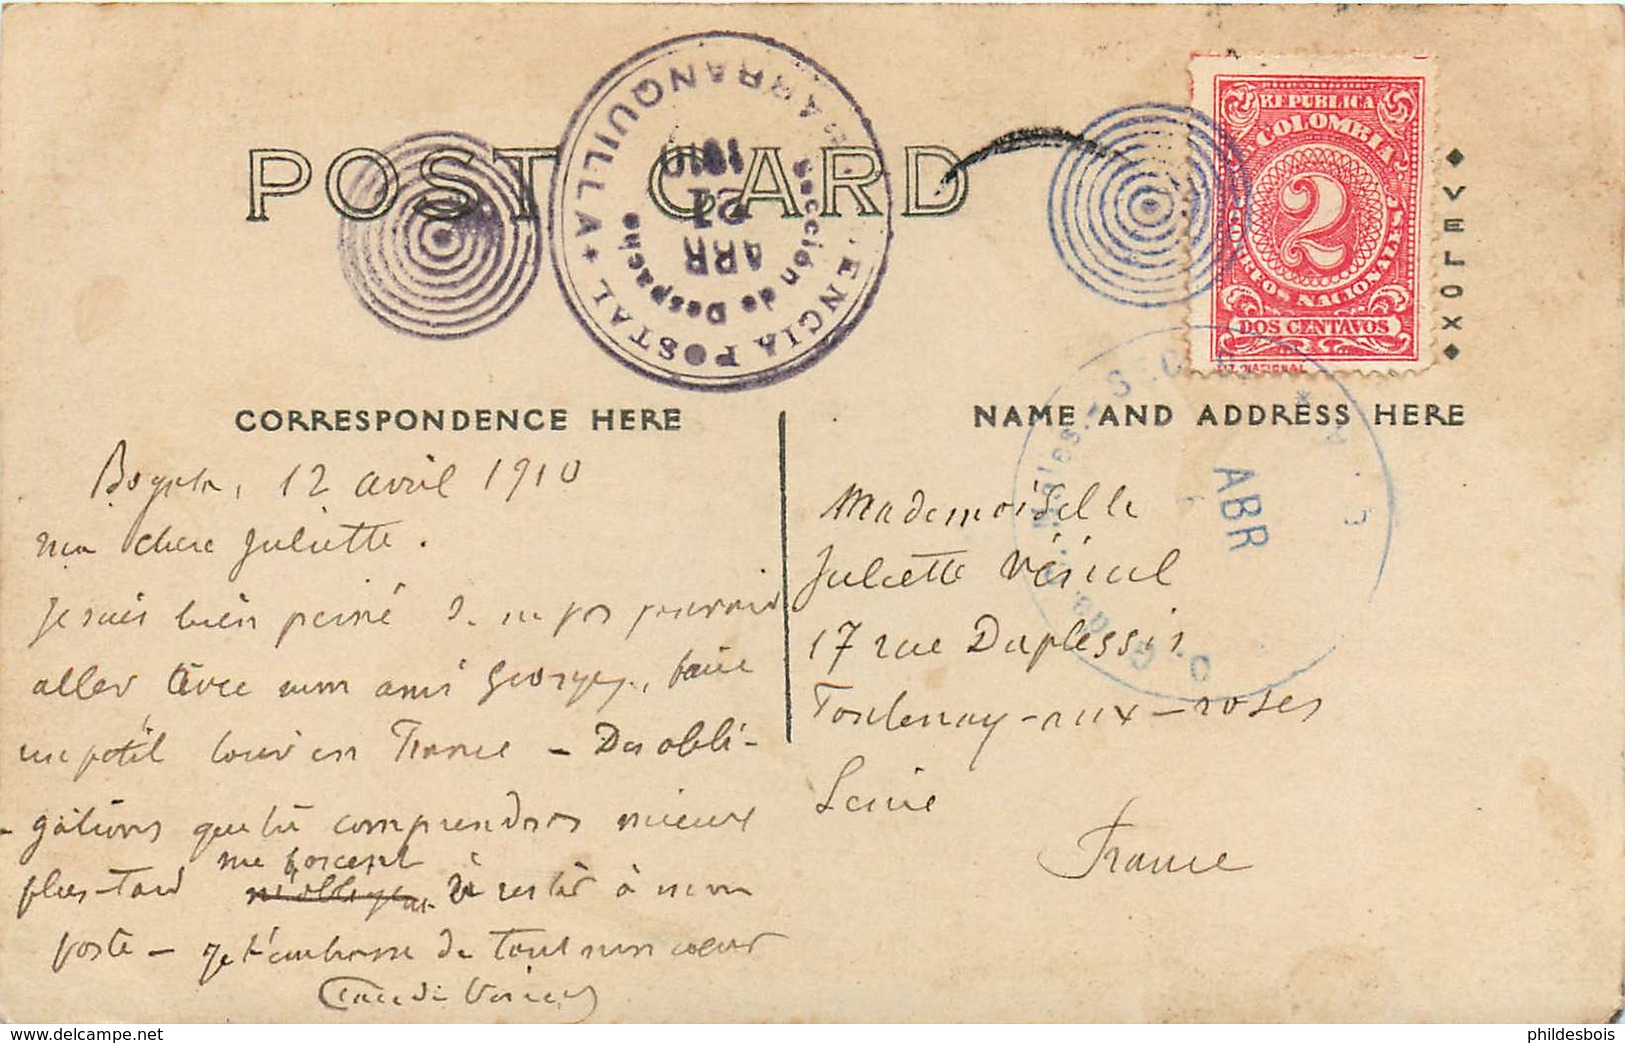 POST CARD
AGENCIA POSTAL * BARRANQUILLA *
Sección de Despacho
ABR
21
1910
REPUBLICA
DE COLOMBIA
2
CORREOS NACIONALES
DOS CENTAVOS
LIT. NACIONAL
VELOX
ABR
CORRESPONDENCE HERE
NAME AND ADDRESS HERE
Bogota, 12 avril 1910
ma chere Juliette.
Je suis bien peiné de ne pas pouvoir
aller avec mon ami Georges, faire
un petit tour en France - Des obli-
- gations que tu comprendras mieux
me forcent
plus tard m'obligent à rester à mon
poste - Je t'embrasse de tout mon cœur
Mademoiselle
Juliette
17 rue Duplessis
Fontenay-aux-roses
Seine
France
phildesbois